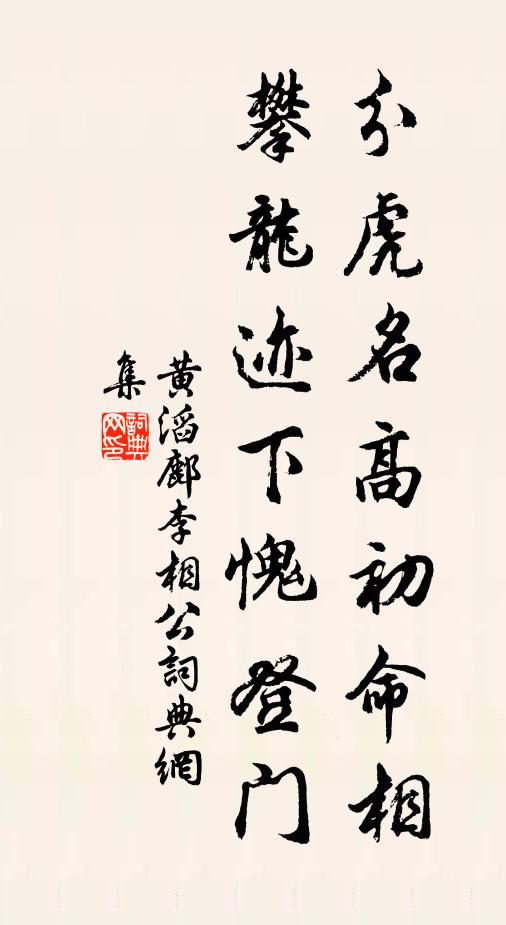 分虎名高初命相
攀龍迹下愧登门
黄滔鄜李相公詞典網
集
詞典
网印